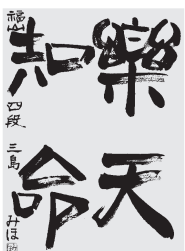 樂天
知命
福山 四段 三島 みほ